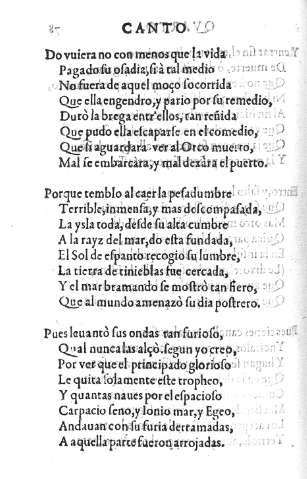 CANTO
Do vuiera no con menos que la vida
Pagado su osadia, si à tal medio
No fuera de aquel moço socorrida
Que ella engendro, y pario por su remedio,
Durò la brega entr'ellos, tan reñida
Que pudo ella escaparse en el comedio,
Que si aguardarà ver al Orco muerto,
Mal se embarcara, y mal dexara el puerto.
Porque temblo al caer la pesadumbre
Terrible, inmensa, y mas descompasada,
La ysla toda, desde su alta cumbre
A la rayz del mar, do esta fundada,
El Sol de espanto recogio su lumbre,
La tierra de tinieblas fue cercada,
Y el mar bramando se mostrò tan fiero,
Que al mundo amenazò su dia postrero.
Pues leuantò sus ondas tan furioso,
Qual nunca las alçò, segun yo creo,
Por ver que el principado glorioso
Le quita solamente este tropheo,
Y quantas naues por el espacioso
Carpacio seno, y Ionio mar, y Egeo,
Andauan con su furia derramadas,
A aquella parte fueron arrojadas.